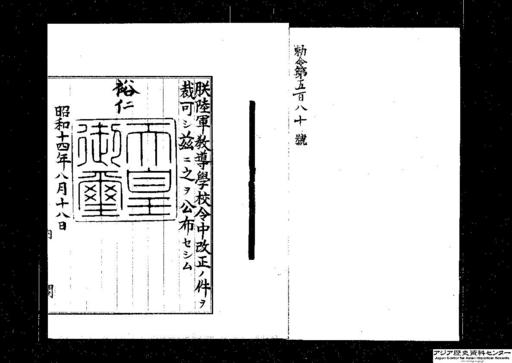 勅令第五百八十號
朕陸軍教導學校令中改正ノ件ヲ
裁可シ茲ニ之ヲ公布セシム
裕仁
天皇御璽
昭和十四年八月十八日
内閣
アジア歴史資料センター
Japan Center for Asian Historical Records